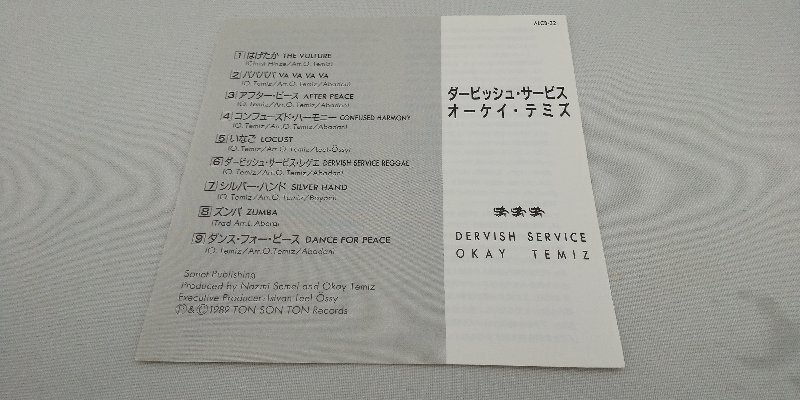 ALCB-22
1 はげたか THE VULTURE
(Okay Temiz/Arr.O. Temiz)
2 バババババ VA VA VA VA
(O. Temiz/Arr.O. Temiz/Abadani)
3 アフター・ピース AFTER PEACE
(O. Temiz/Arr.O. Temiz/Abadani)
4 コンフューズド・ハーモニー CONFUSED HARMONY
(O. Temiz/Arr.O. Temiz/Abadani)
5 いなご LOCUST
(O. Temiz/Arr.O. Temiz/Leel-Össy)
6 ダービッシュ・サービス・レゲエ DERVISH SERVICE REGGAE
(O. Temiz/Arr.O. Temiz/Abadani)
7 シルバー・ハンド SILVER HAND
(O. Temiz/Arr.O. Temiz/
8 ズンバ ZUMBA
(Trad Arr.
9 ダンス・フォー・ピース DANCE FOR PEACE
(O. Temiz/Arr.O. Temiz/Abadani)
Sonet Publishing
Produced by Nazmi Semel and Okay Temiz
Executive Producer: Istvan Leel Össy
Ⓟ&Ⓒ1989 TON SON TON Records
ダービッシュ・サービス
オーケイ・テミズ
DERVISH SERVICE
OKAY TEMIZ